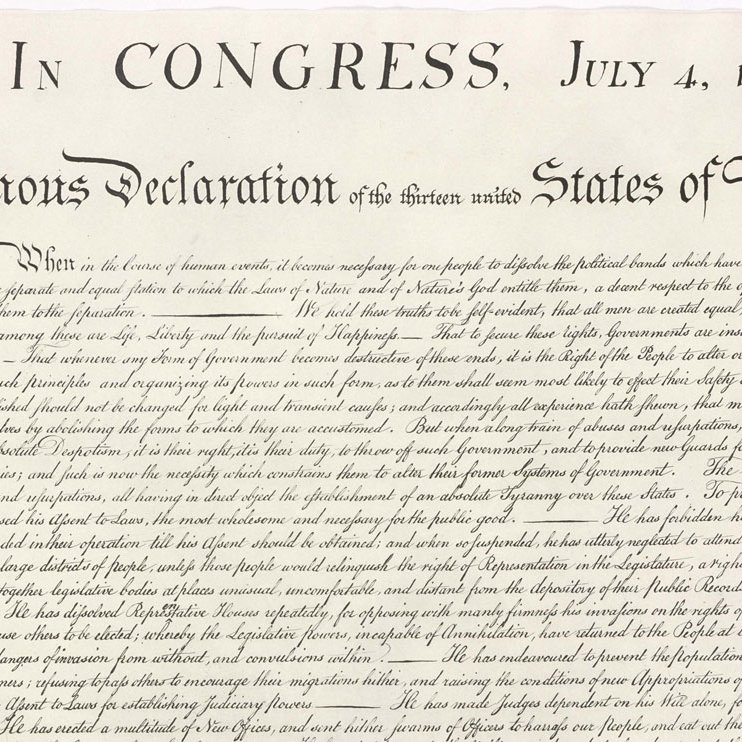 In CONGRESS, July 4, 1
mous Declaration of the thirteen united States of
When in the Course of human events, it becomes necessary for one people to dissolve the political bands which have
separate and equal station to which the Laws of Nature and of Nature's God entitle them, a decent respect to the o
them to the separation. — We hold these truths to be self-evident, that all men are created equal,
among these are Life, Liberty and the pursuit of Happiness.— That to secure these rights, Governments are inst
— That whenever any Form of Government becomes destructive of these ends, it is the Right of the People to alter or
such principles and organizing its powers in such form, as to them shall seem most likely to effect their Safety
lished should not be changed for light and transient causes; and accordingly all experience hath shewn, that m
lves by abolishing the forms to which they are accustomed. But when a long train of abuses and usurpations,
absolute Despotism, it is their right, it is their duty, to throw off such Government, and to provide new Guards fo
ies; and such is now the necessity which constrains them to alter their former Systems of Government. The
and usurpations, all having in direct object the establishment of an absolute Tyranny over these States. To pr
sed his Assent to Laws, the most wholesome and necessary for the public good. — He has forbidden h
ded in their operation till his Assent should be obtained; and when so suspended, he has utterly neglected to attend
large districts of people, unless those people would relinquish the right of Representation in the Legislature, a righ
together legislative bodies at places unusual, uncomfortable, and distant from the depository of their Public Record
He has dissolved Representative Houses repeatedly, for opposing with manly firmness his invasions on the rights of
use others to be elected; whereby the Legislative powers, incapable of Annihilation, have returned to the People at
dangers of invasion from without, and convulsions within. — He has endeavoured to prevent the Population
ners; refusing to pass others to encourage their migrations hither, and raising the conditions of new Appropriations of
Assent to Laws for establishing Judiciary Powers — He has made Judges dependent on his Will alone, fo
He has erected a multitude of New Offices, and sent hither swarms of Officers to harrass our People, and eat out the